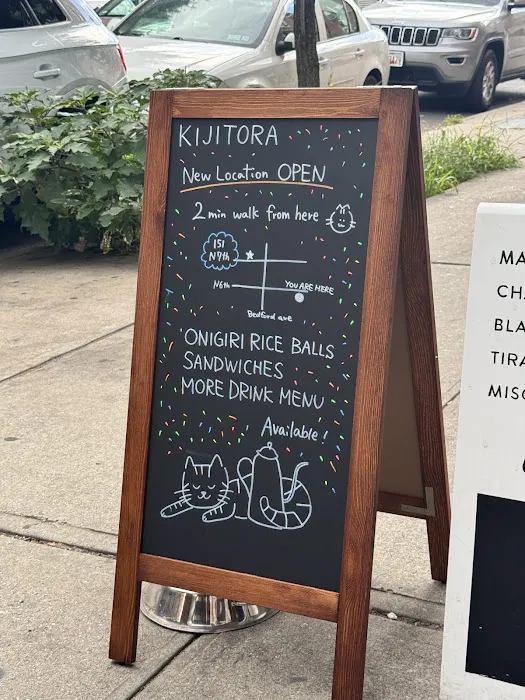 KIJITORA
New Location OPEN
2 min walk from here
151
N7th
N6th
YOU ARE HERE
Bedford ave
ONIGIRI RICE BALLS
SANDWICHES
MORE DRINK MENU
Available!
MA
CH
BLA
TIRA
MISC